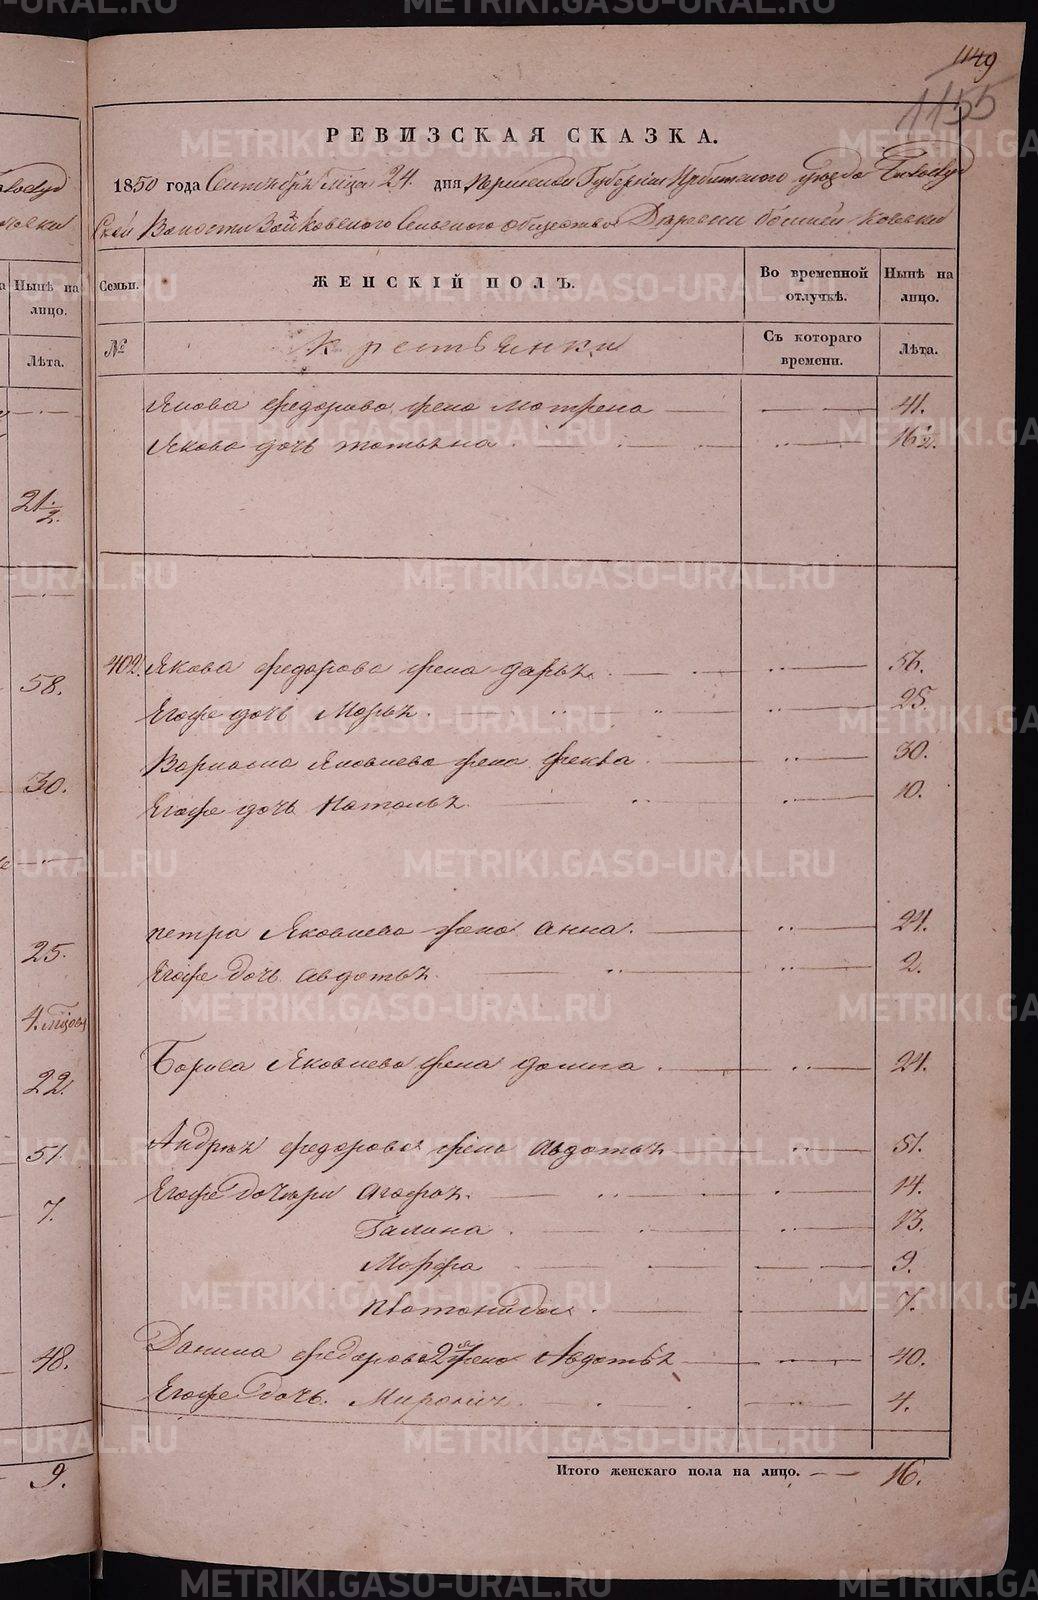 1149
1155
РЕВИЗСКАЯ СКАЗКА.
1850 года Сентября мѣсяца 24. дня Пермской Губернiи Ирбитскаго уѣзда
ской Волости Зайковскаго Сельскаго общества Деревни
Семьи. ЖЕНСКІЙ ПОЛЪ. Во временной отлучкѣ. Нынѣ на лицо.
№ Крестьянки Съ котораго времени. Лѣта.
Якова федорова жена матрена 41.
Якова дочь татьяна 16 1/2.
402. Якова федорова жена дарья 56.
Егоже дочь Марья 25.
Варлама Яковлева жена фекла 30.
Егоже дочь Наталья 10.
петра Яковлева жена анна. 24.
Егоже дочь авдотья 2.
Бориса Яковлева жена 24.
Андрея федорова жена авдотья 51.
Егоже дочери агафья 14.
Галина 13.
Марфа 9.
7.
Данила федорова 2я жена Авдотья 40.
Егоже дочь. 4.
Итого женскаго пола на лицо. 16.
Нынѣ на лицо.
Лѣта.
21 1/2.
58.
30.
25.
4. мѣсяцовъ
22.
51.
7.
48.
9.
METRIKI.GASO-URAL.RU